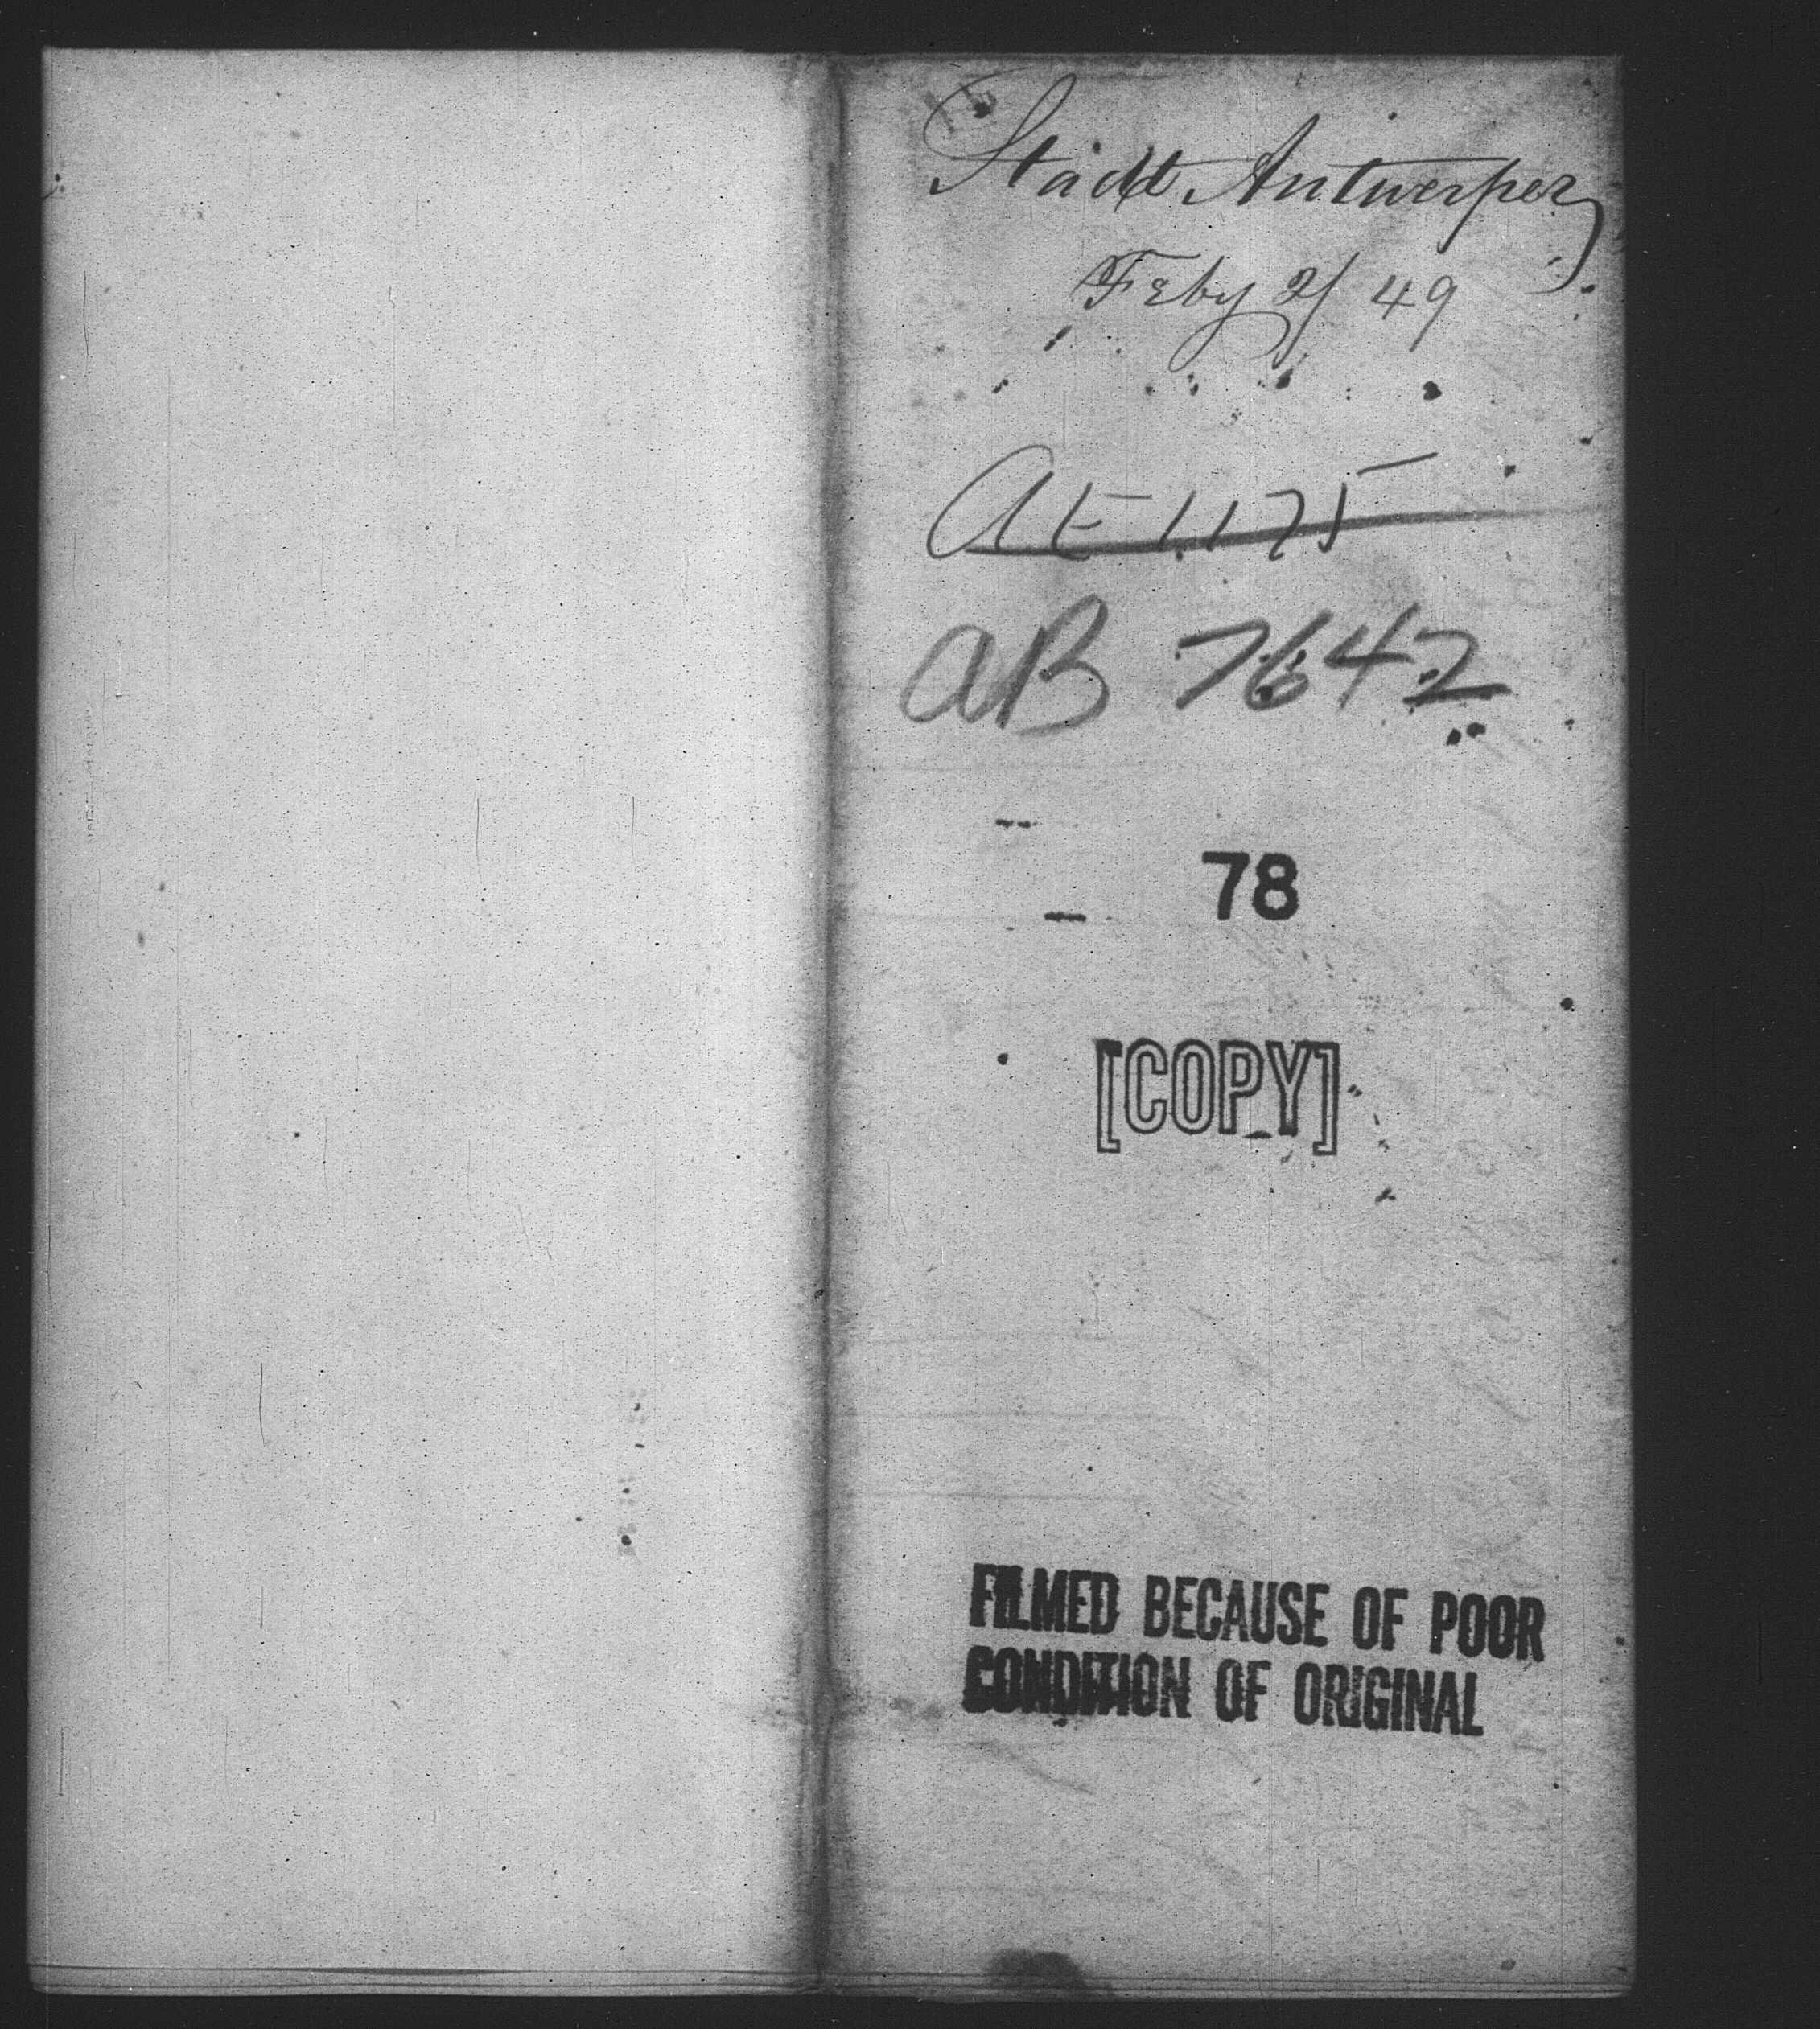 Stadt Antwerpen
Feby 2/ 49
AE 1.175
AB 7642
78
[COPY]
FILMED BECAUSE OF POOR
CONDITION OF ORIGINAL